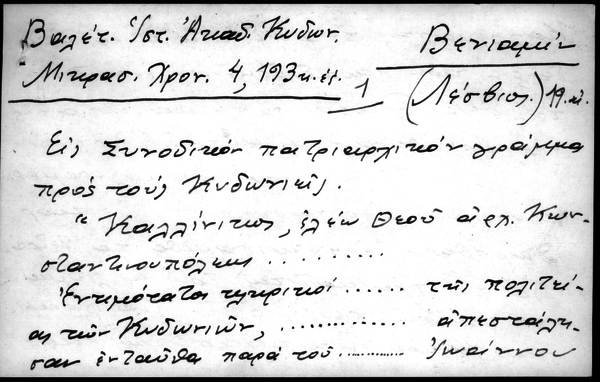 Βαλέτ. Ἱστ. Ἀκαδ. Κυδων.
Μικρασ. Χρον. 4, 193 κ. ἑξ.
1
Βενιαμίν
(Λέσβιος) 19. αἰ.
Εἰς Συνοδικόν πατριαρχικόν γράμμα
πρός τούς Κυδωνιεῖς.
"Καλλίνικος, ἐλέω Θεοῦ ἀρχ. Κων-
σταντινουπόλεως ..........
Ἐντιμότατοι κληρικοί ...... τῆς πολιτεί-
ας τῶν Κυδωνιῶν, ............. ἀπεστάλη-
σαν ἐνταῦθα παρά τοῦ ............ Ἰωάννου